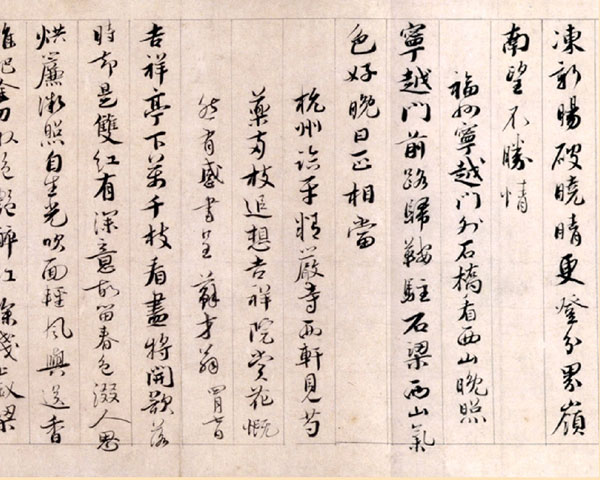 凍新暘破曉晴更登分界嶺
南望不勝情
福州寧越門外石橋看西山晚照
寧越門前路歸鞍駐石梁西山氣
色好晚日正相當
杭州臨平精嚴寺西軒見芍
藥兩枝追想吉祥院賞花慨
然有感書呈蘇才翁四月七日
吉祥亭下萬千枝看盡將開欲落
時却是雙紅有深意故留春色綴人思
烘簾微照自生光吹面輕風與送香
誰把金刀收絕艷醉紅深淺上釵梁